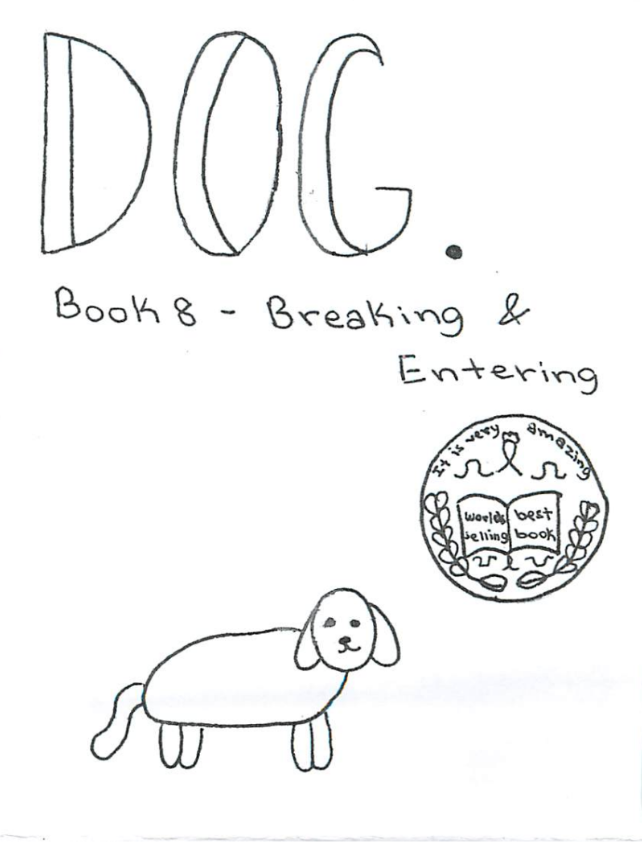 DOG.
Book 8 - Breaking &
Entering
It is very amazing
worlds best
selling book